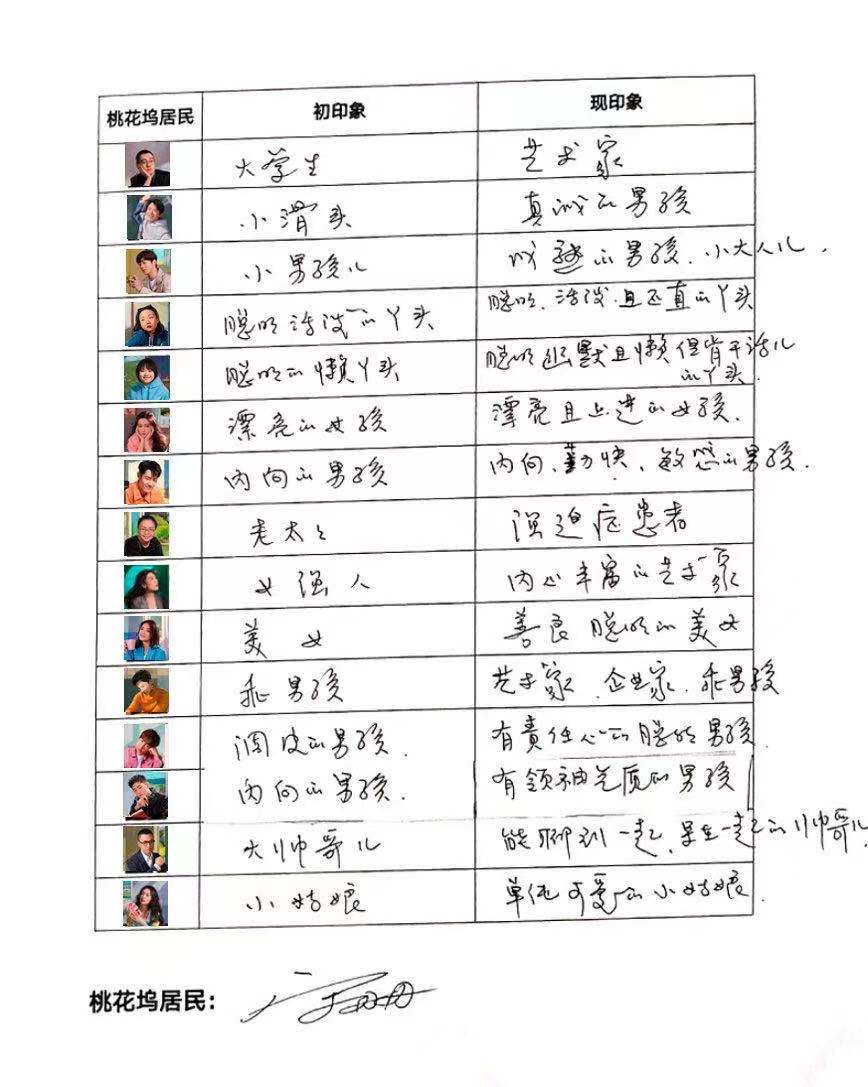 桃花坞居民 初印象 现印象
大学生 艺术家
小滑头 真诚的男孩
小男孩儿 的男孩.小大人儿.
聪明活泼的丫头 聪明.活泼.且正直的丫头
聪明的懒丫头 聪明幽默且懒但肯干活儿
的丫头.
漂亮的女孩 漂亮且上进的女孩.
内向的男孩 内向、勤快、敏感的男孩.
老太太 强迫症患者
女强人 内心丰富的艺术家
美女 善良聪明的美女
乖男孩 艺术家.企业家.乖男孩
调皮的男孩. 有责任心的聪明男孩.
内向的男孩. 有领袖气质的男孩
大帅哥儿 能聊到一起、坐一起的小帅哥儿.
小姑娘 单纯可爱的小姑娘.
桃花坞居民：宋丹丹